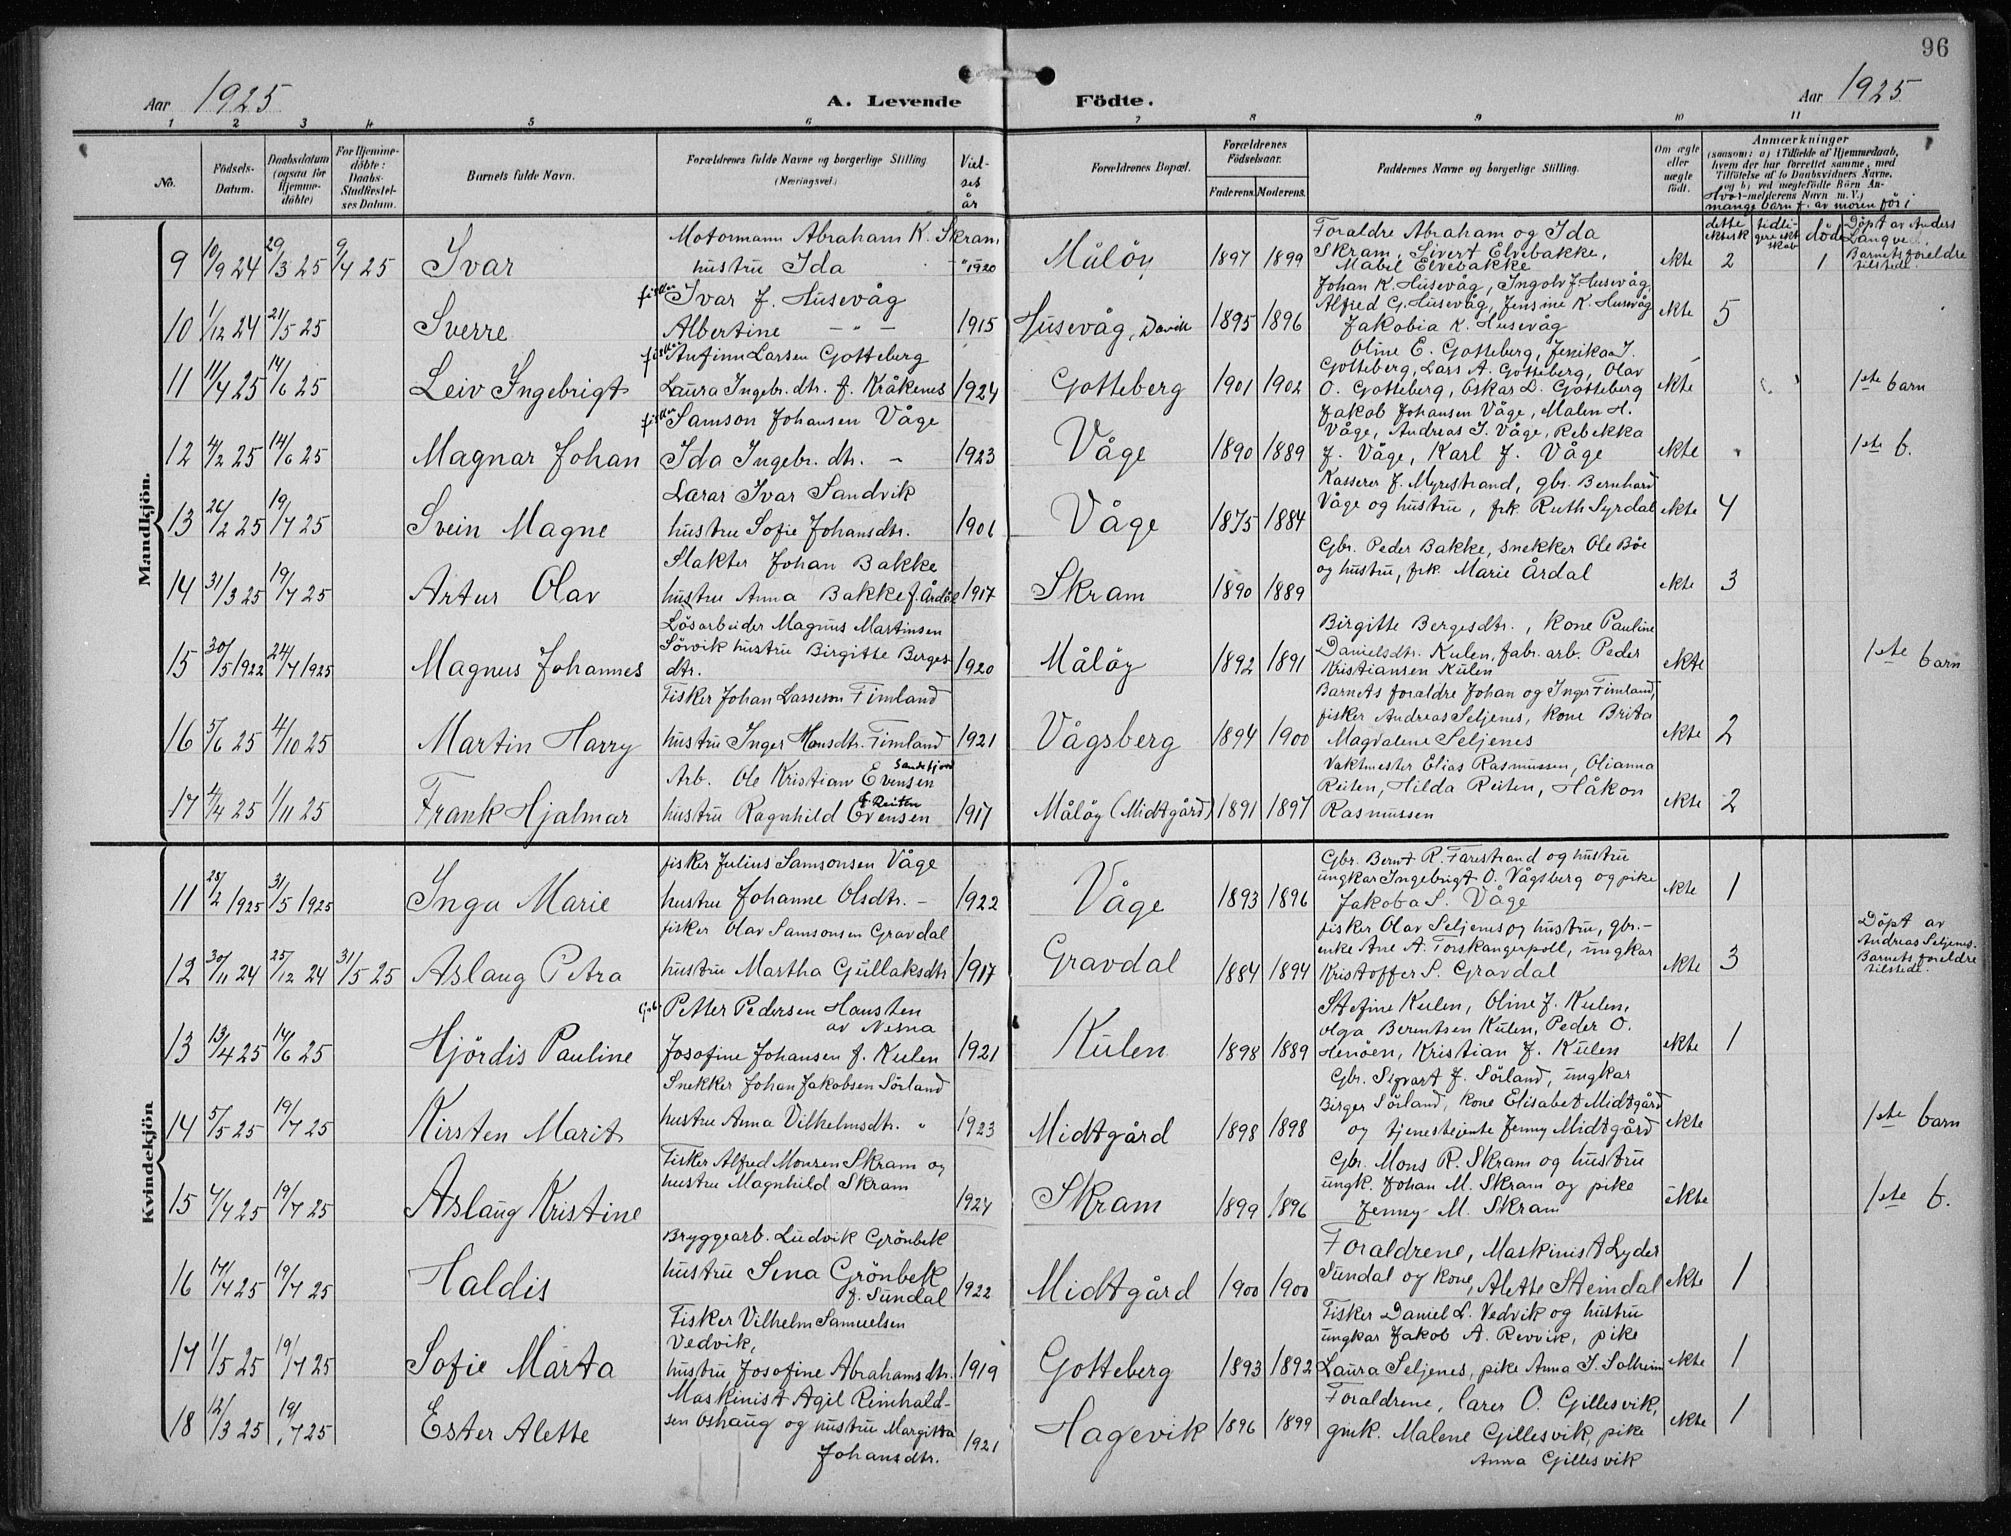 96
Aar 1925 A. Levende Födte. Aar 1925
1 2 3 4 5 6 7 8 9 10 11
No.
Födsels-Datum.
Daabsdatum (ogsaa for Hjemme-döbte)
For Hjemme-döbte: Daabs-Stadfæstel-ses Datum.
Barnets fulde Navn.
Forældrenes fulde Navne og borgerlige Stilling (Næringsvei.)
Viel-ses år
Forældrenes Bopæl.
Forældrenes Födselsaar.
Faderens. Moderens.
Faddernes Navne og borgerlige Stilling.
Om ægte eller uægte födt.
Anmærkninger
(saasom: a) i Tilfælde af Hjemmedaab, hvem der har forrettet samme, med Tilföielse af to Daabsvidners Navne, og b) ved uægtefödte Börn An-melderens Navn m. V.)
Hvor mange barn f. av moren för i
dette ektesk tidli-gere ekt skab döde
Mandkjön.
Motormann Abraham K. Skram
9 10/9 24 29/3 25 9/4 25 Ivar hustru Ida -"- 1920 Målöy 1897 1899
Foraldre Abraham og Ida
Skram, Sivert Elvebakke,
Mabel Elvebakke
ekte 2 1
Döpt av Anders
Langved.
Barnets foreldre
tilstede.
fisker Ivar J. Husevåg
10 1/12 24 21/5 25 Sverre Albertine -"- 1915 Husevåg, Davik 1895 1896
Johan K. Husevåg, Ingolv J. Husevåg,
Alfred G. Husevåg, Jensine K. Husevåg
Jakobia K. Husevåg
ekte 5
fisker Anfinn Larsen Gotteberg
11 11/4 25 14/6 25 Leiv Ingebrigt Laura Ingebr.dtr. f. Kråkenes 1924 Gotteberg 1901 1902
Oline E. Gotteberg, Jenika I.
Gotteberg, Lars A. Gotteberg, Olav
O. Gotteberg, Oskar L. Gotteberg
ekte 1ste barn
fisker Samson Johansen Våge
12 4/2 25 14/6 25 Magnar Johan Ida Ingebr. dtr. - 1923 Våge 1890 1889
Jakob Johansen Våge, Malen H.
Våge, Andreas I. Våge, Rebekka
J. Våge, Karl J. Våge
ekte 1ste b.
Lärar Ivar Sandvik
13 26/2 25 19/7 25 Svein Magne hustru Sofie Johansdtr. 1906 Våge 1875 1884
Kasserer J. Myrestrand, gbr. Bernhard
Våge og hustru, frk Ruth Syrdal
ekte 4
Slakter Johan Bakke
14 31/3 25 19/7 25 Artur Olav hustru Anna Bakke f. Årdal 1917 Skram 1890 1889
Gbr. Peder Bakke, snekker Ole Böe
og hustru, frk. Marie Årdal
ekte 3
Lösarbeider Magnus Martinsen
Sörvik hustru Birgitte Berges-
15 30/5 1922 24/7 1925 Magnus Johannes dtr. 1920 Målöy 1892 1891
Birgitte Bergesdtr., kone Pauline
Danielsdtr. Kulen, fabr. arb. Peder
Kristiansen Kulen
ekte 1ste barn
Fisker Johan Lasseson Timland
16 5/6 25 4/10 25 Martin Harry hustru Inger Monsdtr. Timland 1921 Vågsberg 1894 1900
Barnets foraldre Johan og Inger Timland,
fisker Andreas Seljenes, kone Brita
Magdalene Seljenes
ekte 2
Arb. Ole Kristian Evensen Sandefjord
17 4/4 25 1/11 25 Frank Hjalmar hustru Ragnhild Evensen f. Reiten 1917 Målöy (Midtgård) 1891 1897
Vaktmester Elias Rasmussen, Olianna
Reiten, Hilda Reiten, Håkon
Rasmussen
ekte 2
Kvindekjön
fisker Julius Samsonsen Våge
11 28/2 1925 31/5 1925 Inga Marie hustru Johanne Olsdtr. - 1922 Våge 1893 1896
Gbr. Bernt R. Farestrand og hustru
ungkar Ingebrigt O. Vågsberg og pike
Jakoba S. Våge
ekte 1
fisker Olav Samsonsen Gravdal
12 30/11 24 25/12 24 31/5 25 Aslaug Petra hustru Martha Gullaksdtr 1917 Gravdal 1884 1894
fisker Olav Seljenes og hustru, gbr.-
enke Ane A. Torskangerpoll, ungkar
Kristoffer S. Gravdal
ekte 3
Döpt av
Andreas Seljenes.
Barnets foreldre
tilstede.
Gbr. Petter Pedersen Hansten
av Nesna
13 13/4 25 14/6 25 Hjördis Pauline Josofine Johansen f. Kulen 1921 Kulen 1898 1889
Stefine Kulen, Oline J. Kulen,
Olga Berentsen Kulen, Peder O.
Henöen, Kristian J. Kulen
ekte 1
Snekker Johan Jakobsen Sörland
14 5/5 25 19/7 25 Kirsten Marit hustru Anna Vilhelmsdtr. " 1923 Midtgård 1898 1898
Gbr. Sigvart J. Sörland, ungkar
Birger Sörland, kone Elisabet Midtgård
og tjenestejente Jenny Midtgård
ekte 1ste barn
Fisker Alfred Monsen Skram og
hustru Magnhild Skram
15 4/4 25 19/7 25 Aslaug Kristine 1924 Skram 1899 1896
Gbr. Mons R. Skram og hustru
ungk. Johan M. Skram og pike
Jenny M. Skram
ekte 1ste b.
Bryggearb. Ludvik Grönbek
16 17/4 25 19/7 25 Haldis hustru Sina Grönbek f. Sundal 1922 Midtgård 1900 1900
Foraldrene, Maskinist Lyder
Sundal og kone, Alette Steindal
ekte 1
Fisker Vilhelm Samuelsen
Vedvik,
17 1/5 25 19/7 25 Sofie Marta hustru Josofine Abrahamsdtr. 1919 Gotteberg 1893 1892
Fisker Daniel L. Vedvik og hustru
ungkar Jakob A. Revvik, pike
Laura Seljenes, pike Anna I. Solheim
ekte 1
Maskinist Agil Reinhald-
sen Oshaug og hustru Margitta
Johansdtr.
18 12/3 25 19/7 25 Ester Alette 1921 Hagevik 1896 1899
Foraldrene, lärer O. Gillesvik,
gmk. Malene Gillesvik, pike
Anna Gillesvik
ekte 1